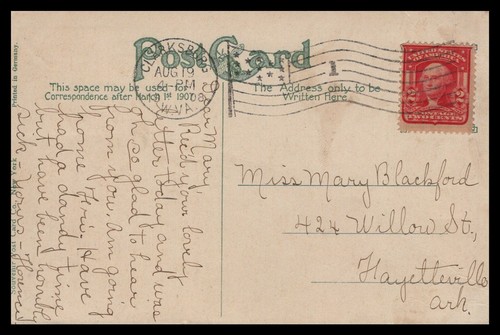 Post Card
CLARKSBURG
AUG 19
PM
08
W.VA.
1
This space may be used for
Correspondence after March 1st 1907
The Address only to be
Written Here.
Printed in Germany.
2 2
TWO CENTS
Dear Mary,
Rec'd your lovely
letter today and was
so glad to hear
from you. Am going
home Fri. Have
had a dandy time
but have been horribly
sick.
Florence.
Miss Mary Blackford
424 Willow St.,
Fayetteville
Ark.